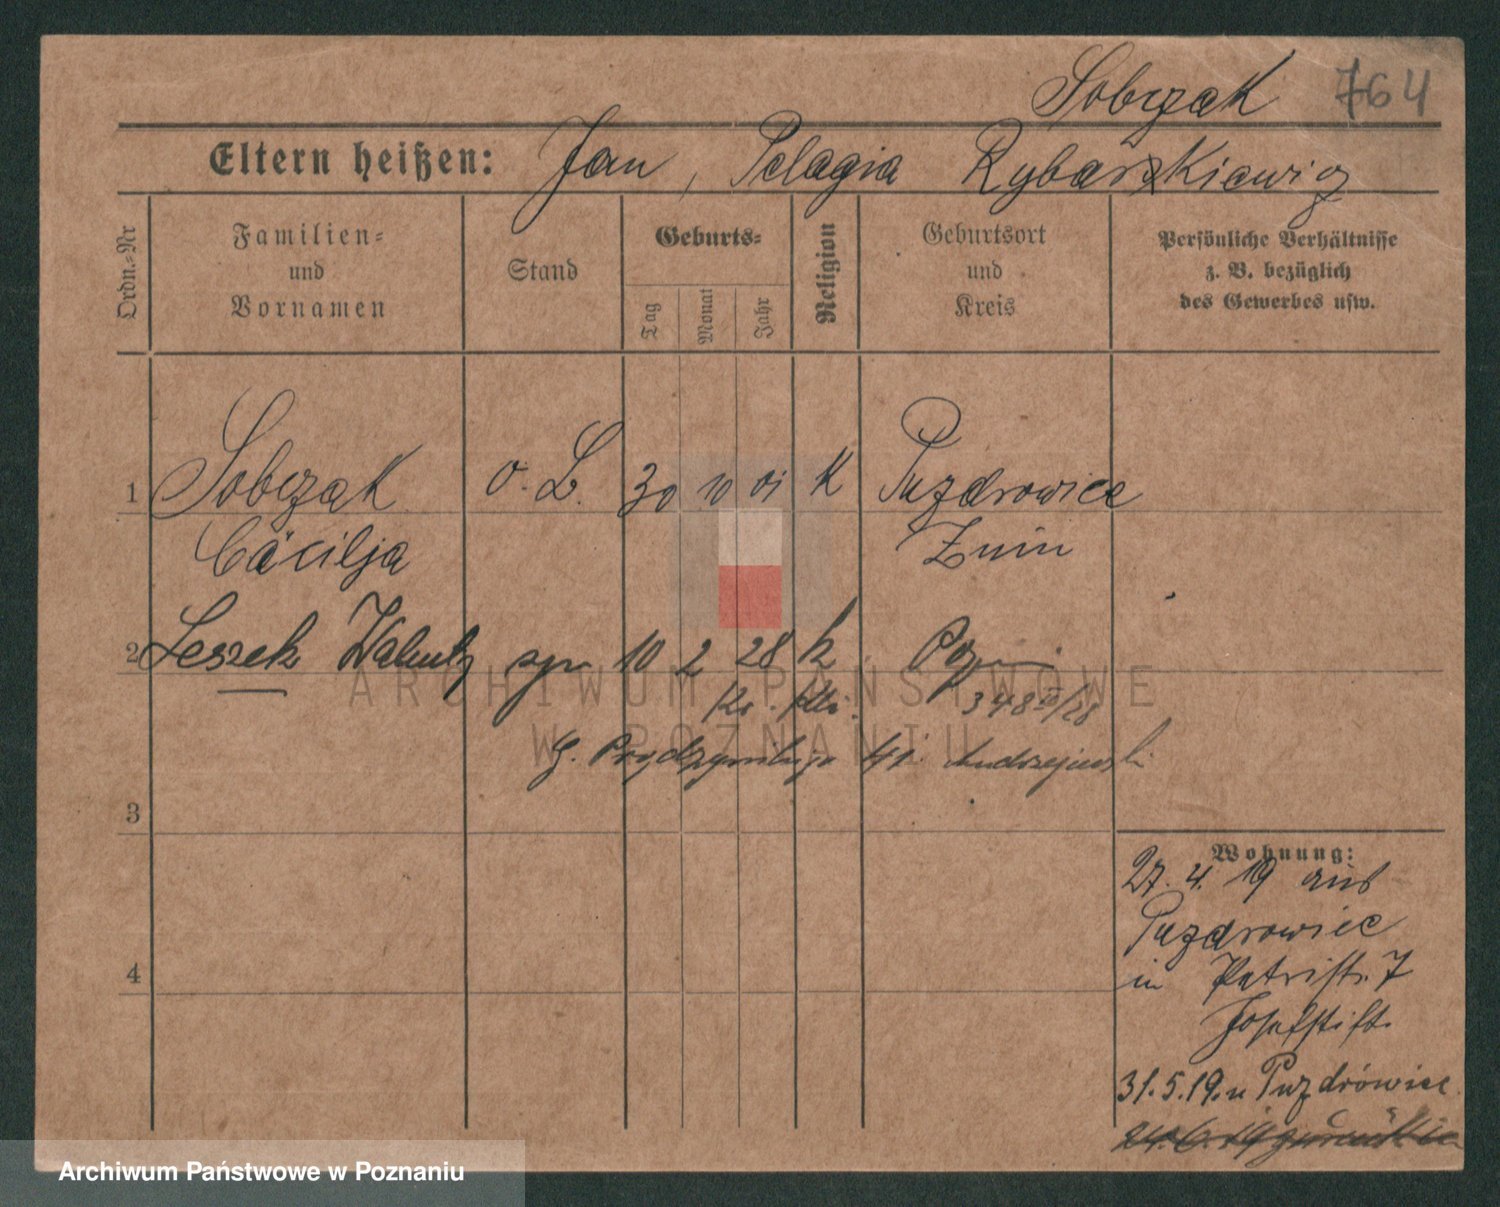 Sobczak 764
Eltern heißen: Jan, Pelagia Rybarzkiewicz
Ordn.=Nr
Familien=
und
Vornamen
Stand
Geburts=
Tag
Monat
Jahr
Religion
Geburtsort
und
Kreis
Persönliche Verhältnisse
z. B. bezüglich
des Gewerbes usw.
1 Sobczak o. L. 30 10 01 K Puzdrowiec
Cäcilja Znin
2 Leszek syn 10 2 28 k Pozn
348 /28
41. Andrzejewski
3
Wohnung:
27. 4. 19 aus
Puzdrowiec
4
in Petristr. 7
Josefstift.
31.5.19. n Puzdrówiec
24.6.19
ARCHIWUM PAŃSTWOWE
W POZNANIU
Archiwum Państwowe w Poznaniu